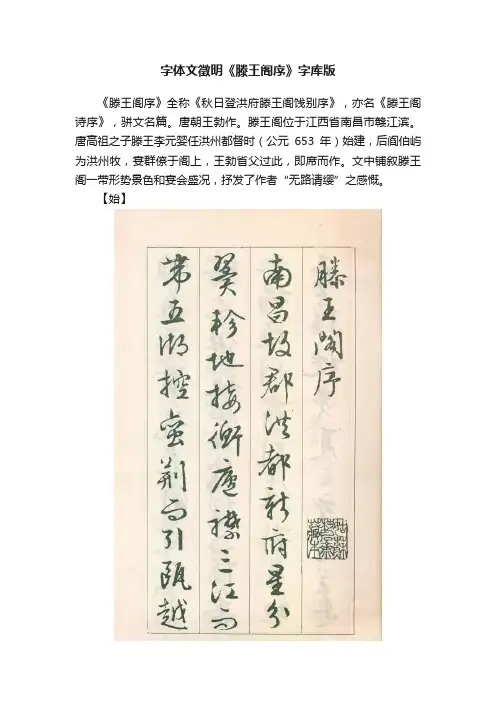 字体文徵明《滕王阁序》字库版
《滕王阁序》全称《秋日登洪府滕王阁饯别序》,亦名《滕王阁
诗序》,骈文名篇。唐朝王勃作。滕王阁位于江西省南昌市赣江滨。
唐高祖之子滕王李元婴任洪州都督时(公元 653 年)始建,后阎伯屿
为洪州牧,宴群僚于阁上,王勃省父过此,即席而作。文中铺叙滕王
阁一带形势景色和宴会盛况,抒发了作者“无路请缨”之感慨。
【始】
滕王閣序
南昌故郡洪都新府星分
翼軫地接衡廬襟三江而
帶五湖控蠻荆而引甌越